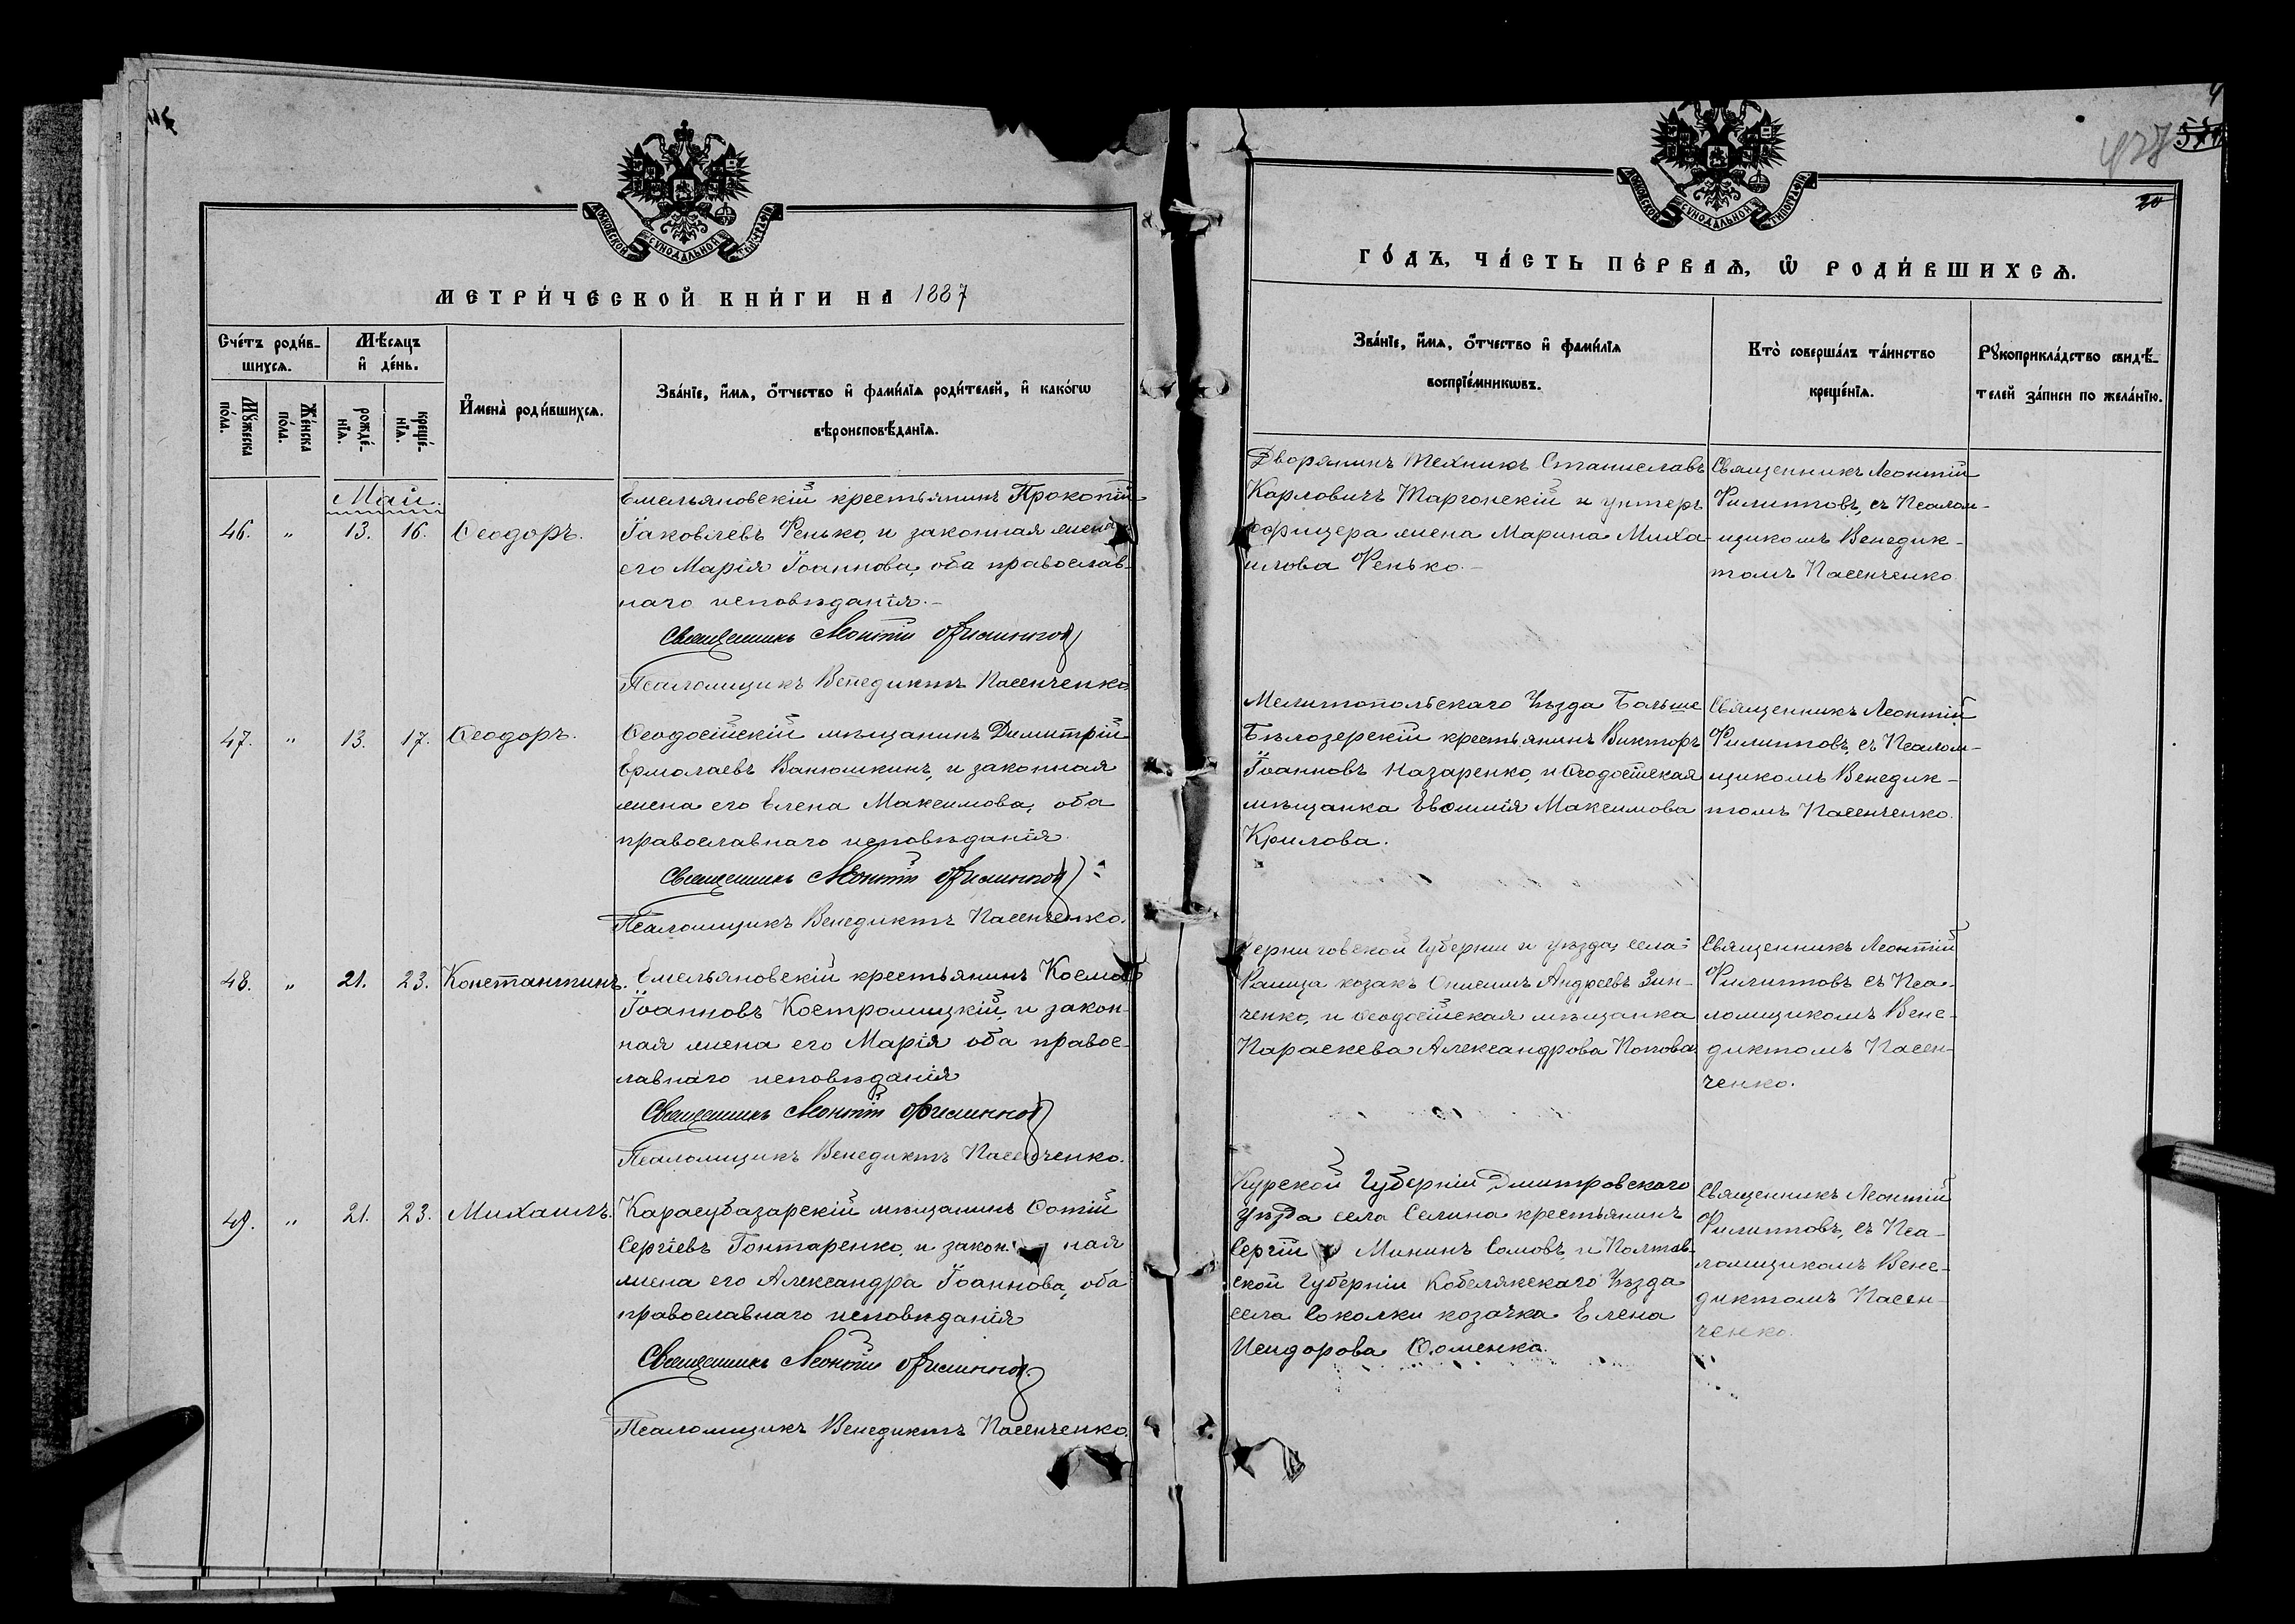 МОСКОВСКОЙ СѴНОДАЛЬНОЙ ТИПОГРАФІИ
МЕТРИ́ЧЕСКОЙ КНИ́ГИ НА 1887
Сче́тъ роди́в-
шихсѧ.
Мѣ́сѧцъ
и҆ де́нь.
Мꙋ́жеска
по́ла.
Же́нска
по́ла.
рожде́-
нїѧ.
креще́-
нїѧ.
И҆мена̀ роди́вшихсѧ.
Зва́нїе, и҆́мѧ, ѻ҆́тчество и҆ фами́лїѧ роди́телей, и҆ како́гѡ
вѣроисповѣ́данїѧ.
Май.
46. " 13. 16. Ѳеодоръ.
Емельяновскій крестьянинъ Прокопій
Іаковлевъ Фенько, и законная жена
его Марія Іоаннова, оба православ-
наго исповѣданія.-
Священникъ Леонтій Филиппов
Псаломщикъ Венедиктъ Пасенченко
47. " 13. 17. Ѳеодоръ.
Ѳеодосійскій мѣщанинъ Димитрій
Ермолаевъ Ванюшкинъ, и законная
жена его Елена Максимова, оба
православнаго исповѣданія.
Священникъ Леонтій Филиппов
Псаломщикъ Венедиктъ Пасенченко.
48. " 21. 23. Константинъ.
Емельяновскій крестьянинъ Косма
Іоанновъ Костромицкій, и закон-
ная жена его Марія оба правос-
лавнаго исповѣданія
Священникъ Леонтій Филиппов
Псаломщикъ Венедиктъ Пасенченко.
49. " 21. 23. Михаилъ.
Карасубазарскій мѣщанинъ Фотій
Сергіевъ Гонтаренко, и закон ная
жена его Александра Іоаннова, оба
православнаго исповѣданія
Священникъ Леонтій Филиппов.
Псаломщикъ Венедиктъ Пасенченко.
427
20
МОСКОВСКОЙ СѴНОДАЛЬНОЙ ТИПОГРАФІИ
ГО́ДЪ, ЧА́СТЬ ПЕ́РВАѦ, Ѡ҆ РОДИ́ВШИХСѦ.
Зва́нїе, и҆́мѧ, ѻ҆́тчество и҆ фами́лїѧ
воспрїе́мникѡвъ.
Кто̀ соверша́лъ та́инство
креще́нїѧ.
Рꙋкоприкла́дство свидѣ́-
телей за́писи по жела́нїю.
Дворянинъ техникъ Станиславъ
Карловичъ Таргонскій и унтеръ
офицера жена Марина Миха-
илова Фенько.-
Священникъ Леонтій
Филипповъ, съ Псалом-
щикомъ Венедик-
томъ Пасенченко
Мелитопольскаго Уѣзда Больше
Бѣлозерскій крестьянинъ Викторъ
Іоанновъ Назаренко, и Ѳеодосійская
мѣщанка Евфимія Максимова
Крилова.
Священникъ Леонтій
Филипповъ, съ Псалом-
щикомъ Венедик-
томъ Пасенченко.
Черниговской Губерніи и уѣзда, села
козакъ Онисимъ Андреевъ Зин-
ченко, и Ѳеодосійская мѣщанка
Параскева Александрова Попова
Священникъ Леонтій
Филипповъ съ Пса-
ломщикомъ Вене-
диктомъ Пасен-
ченко.
Курской Губерніи Дмитровскаго
Уѣзда села Селина крестьянинъ
Сергій Мининъ Сомовъ, и Полтав-
ской Губерніи Кобелякскаго Уѣзда
села Соколки козачка Елена
Исидорова Фоменко.
Священникъ Леонтій
Филипповъ, съ Пса-
ломщикомъ Вене-
диктомъ Пасен-
ченко.